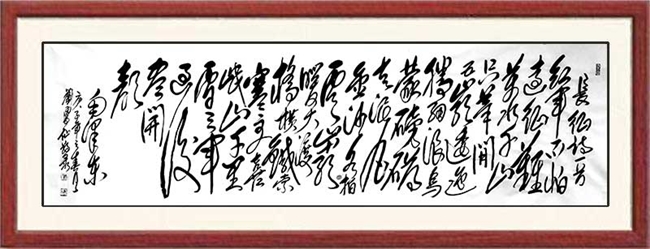 長征詩一首
紅軍不怕
遠征難
萬水千山
只等閒
五嶺逶迤
騰細浪烏
蒙磅礴
走泥丸
金沙水拍
雲崖
暖大渡
橋橫鐵索
寒更喜
岷山千里
雪三軍
過後
盡開
顏
毛澤東